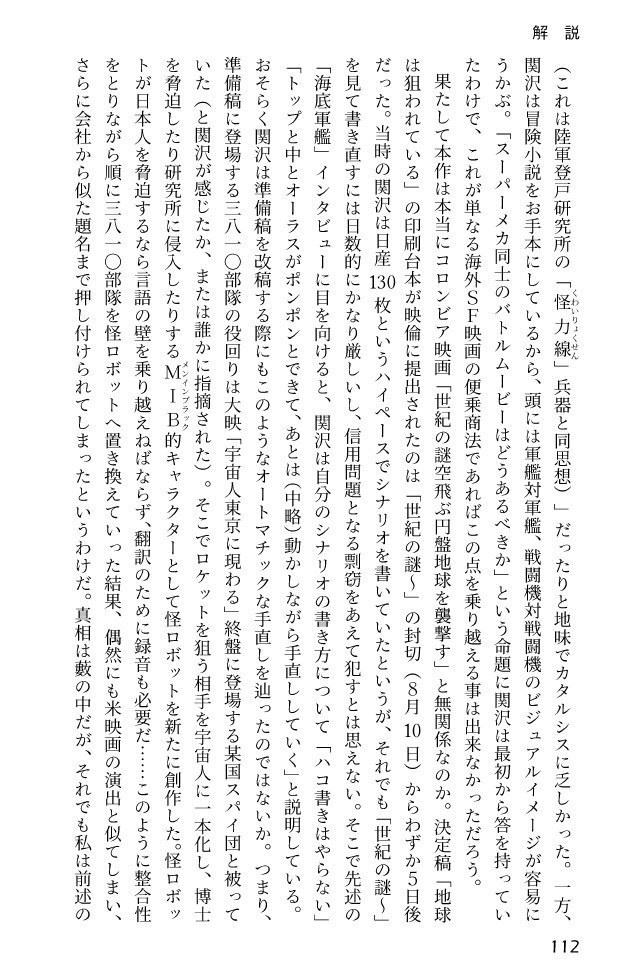 解説
（これは陸軍登戸研究所の「怪力線」兵器と同思想）」だったりと地味でカタルシスに乏しかった。一方、
くわいりょくせん
関沢は冒険小説をお手本にしているから、頭には軍艦対軍艦、戦闘機対戦闘機のビジュアルイメージが容易に
うかぶ。「スーパーメカ同士のバトルムービーはどうあるべきか」という命題に関沢は最初から答を持ってい
たわけで、これが単なる海外ＳＦ映画の便乗商法であればこの点を乗り越える事は出来なかっただろう。
　果たして本作は本当にコロンビア映画「世紀の謎空飛ぶ円盤地球を襲撃す」と無関係なのか。決定稿「地球
は狙われている」の印刷台本が映倫に提出されたのは「世紀の謎～」の封切（８月10日）からわずか５日後
だった。当時の関沢は日産130枚というハイペースでシナリオを書いていたというが、それでも「世紀の謎～」
を見て書き直すには日数的にかなり厳しいし、信用問題となる剽窃をあえて犯すとは思えない。そこで先述の
「海底軍艦」インタビューに目を向けると、関沢は自分のシナリオの書き方について「ハコ書きはやらない」
「トップと中とオーラスがポンポンとできて、あとは（中略）動かしながら手直ししていく」と説明している。
おそらく関沢は準備稿を改稿する際にもこのようなオートマチックな手直しを辿ったのではないか。つまり、
準備稿に登場する三八一〇部隊の役回りは大映「宇宙人東京に現わる」終盤に登場する某国スパイ団と被って
いた（と関沢が感じたか、または誰かに指摘された）。そこでロケットを狙う相手を宇宙人に一本化し、博士
を脅迫したり研究所に侵入したりするＭＩＢ的キャラクターとして怪ロボットを新たに創作した。怪ロボッ
メンインブラック
トが日本人を脅迫するなら言語の壁を乗り越えねばならず、翻訳のために録音も必要だ……このように整合性
をとりながら順に三八一〇部隊を怪ロボットへ置き換えていった結果、偶然にも米映画の演出と似てしまい、
さらに会社から似た題名まで押し付けられてしまったというわけだ。真相は藪の中だが、それでも私は前述の
112